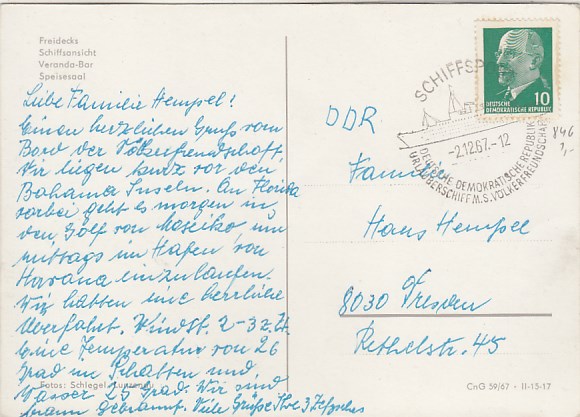 Freidecks
Schiffsansicht
Veranda-Bar
Speisesaal
Liebe Familie Hempel!
Einen herzlichen Gruß vom
Bord der Völkerfreundschaft
Wir liegen kurz vor den
Bahama Inseln. An Florida
vorbei geht es morgen in
den Golf von Mexiko, um
mittags im Hafen von
Havana einzulaufen.
Wir hatten eine herrliche
Überfahrt. Windst. 2-3 z. Zt.
Eine Temperatur von 26
Grad im Schatten und
Wasser 25 Grad. Wir sind
braun gebrannt. Viele Grüße Ihre 3
Fotos: Schlegel
SCHIFFSP
DEUTSCHE
DEMOKRATISCHE REPUBLIK
10
-2.12.67.-12
DEUTSCHE DEMOKRATISCHE REPUBLIK
URLAUBERSCHIFF M.S. VÖLKERFREUNDSCHAFT
846
1,-
DDR
Familie
Hans Hempel
8030 Dresden
Rethelstr. 45
CnG 59/67 · II-15-17